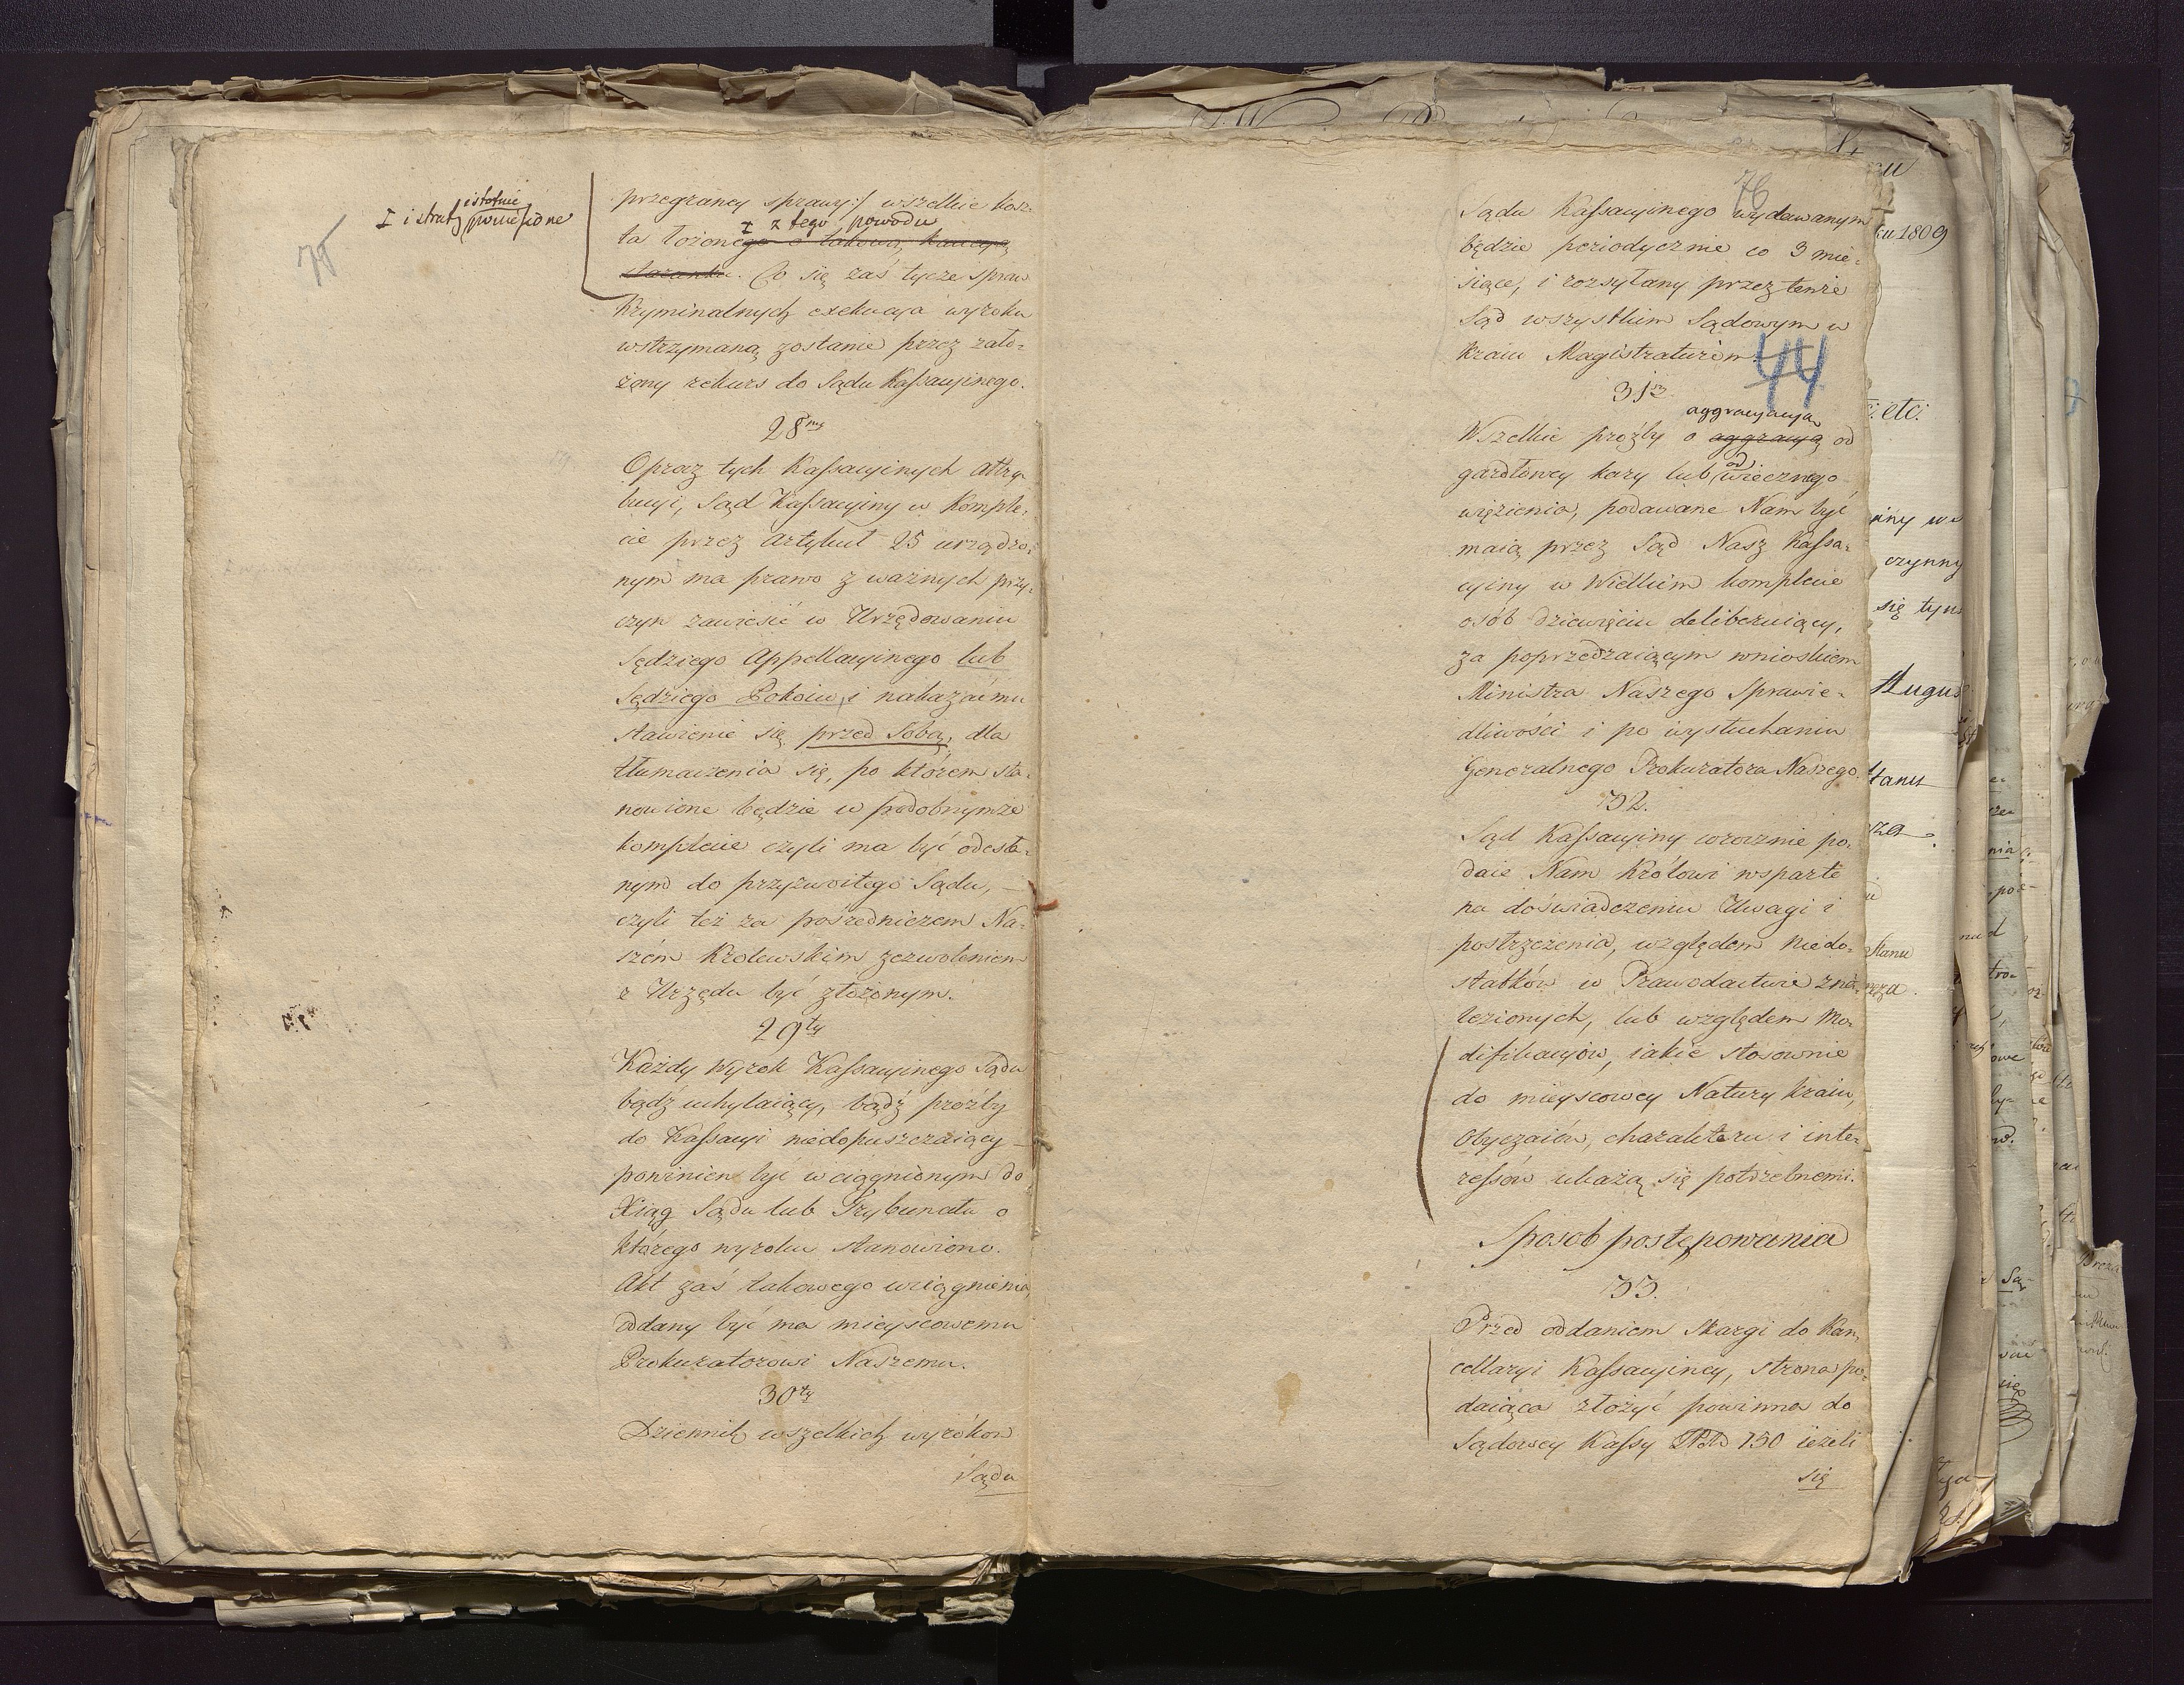 75
istotnie
I i straty poniesione
przegraney sprawy:/ wszelkie kosz-
I z tego powodu
ta łożonego o takową kaucyą
staranki. Co się zaś tycze spraw
Kryminalnych exekucya wyroku
wstrzymaną zostanie przez zało-
żony rekurs do Sądu Kassacyinego.
28my
Opracz tych Kassacyinych attry-
bucyi, Sąd Kassacyiny w komple-
cie przez Artykuł 25 urządzo-
nym ma prawo z ważnych przy-
czyn zawiesić w Urzędowaniu
Sędziego Appellacyinego lub
Sędziego Pokoiu, i nakazać mu
stawienie się przed Sobą, dla
tłumaczenia się, po którem sta-
nowione będzie w podobnymże
komplecie czyli ma być odesła-
nym do przyzwoitego Sądu, —
czyli też za pośredniczem Na-
szem Krolewskim zezwoleniem
z Urzędu być złożonym.
29ty
Każdy Wyrok Kassacyinego Sądu
bądź uchylaiący, bądź proźby
do Kassacyi niedopuszczaiący —
powinien być wciągnionym do
Xiąg Sądu lub Trybunału o
którego wyroku stanowiono.
Akt zaś takowego wciągnienia,
oddany być ma mieyscowemu
Prokuratorowi Naszemu.
30ty
Dziennik wszelkich wyroków
Sądu
76
Sądu Kassacyinego wydawanym
będzie periodycznie co 3 mie-
siące, i rozsyłany przez tenże
Sąd wszystkim Sądowym w
kraiu Magistraturom.
44
31szy
aggracyacyą
Wszelkie proźby o aggracyą od
gardłowey kary lub od wiecznego
więzienia, podawane Nam być
maią przez Sąd Nasz Kassa-
cyiny w Wielkim komplecie
osób dziewięciu deliberuiący,
za poprzedzaiącym wnioskiem
Ministra Naszego Sprawie-
dliwości i po wysłuchaniu
Generalnego Prokuratora Naszego.
32.
Sąd Kassacyiny corocznie po-
daie Nam Królowi wsparte
na doświadczeniu Uwagi i
postrzeżenia, względem niedo-
statków w Prawodawstwie zna-
lezionych, lub względem Mo-
difikacyów, iakie stosownie
do mieyscowey Natury kraiu,
Obyczaiów, charakteru i inte-
ressów ukażą się potrzebnemi.
Sposob postępowania
33.
Przed oddaniem skargi do Kan-
cellaryi Kassacyiney, strona po-
daiąca złożyć powinna do
Sądowey Kassy 150 ieżeli
się
ku 1809
etc.
czynny
się tyn
Augus
Stanu